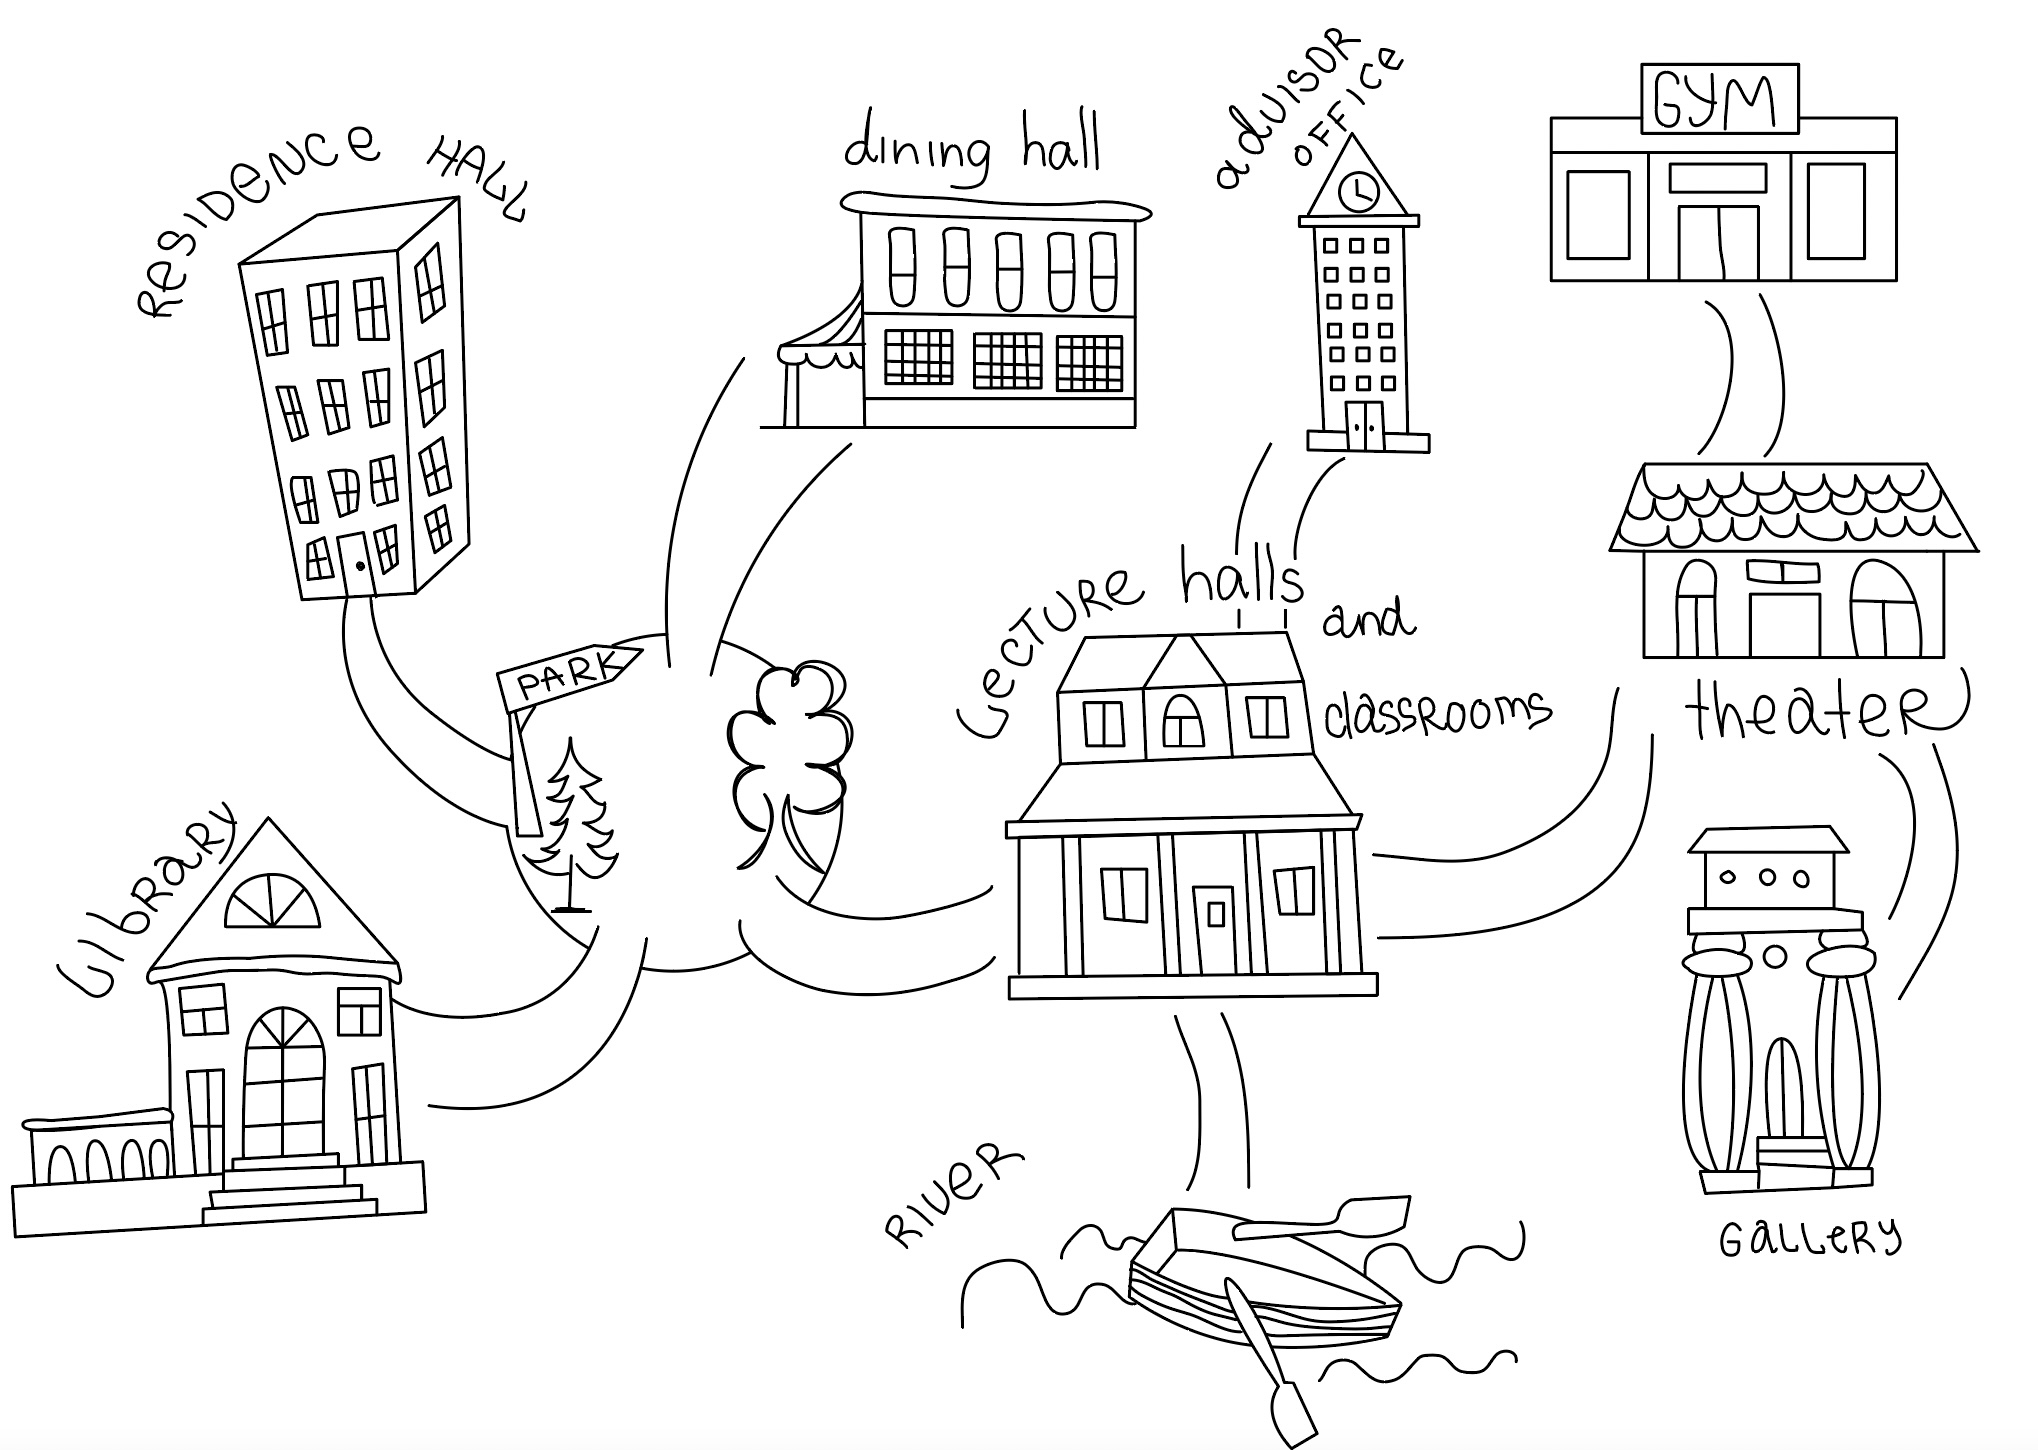 ResiDence Hall
dining hall
advisor
office
GYM
PARK
Lecture halls
and
classrooms
theater
Library
River
Gallery